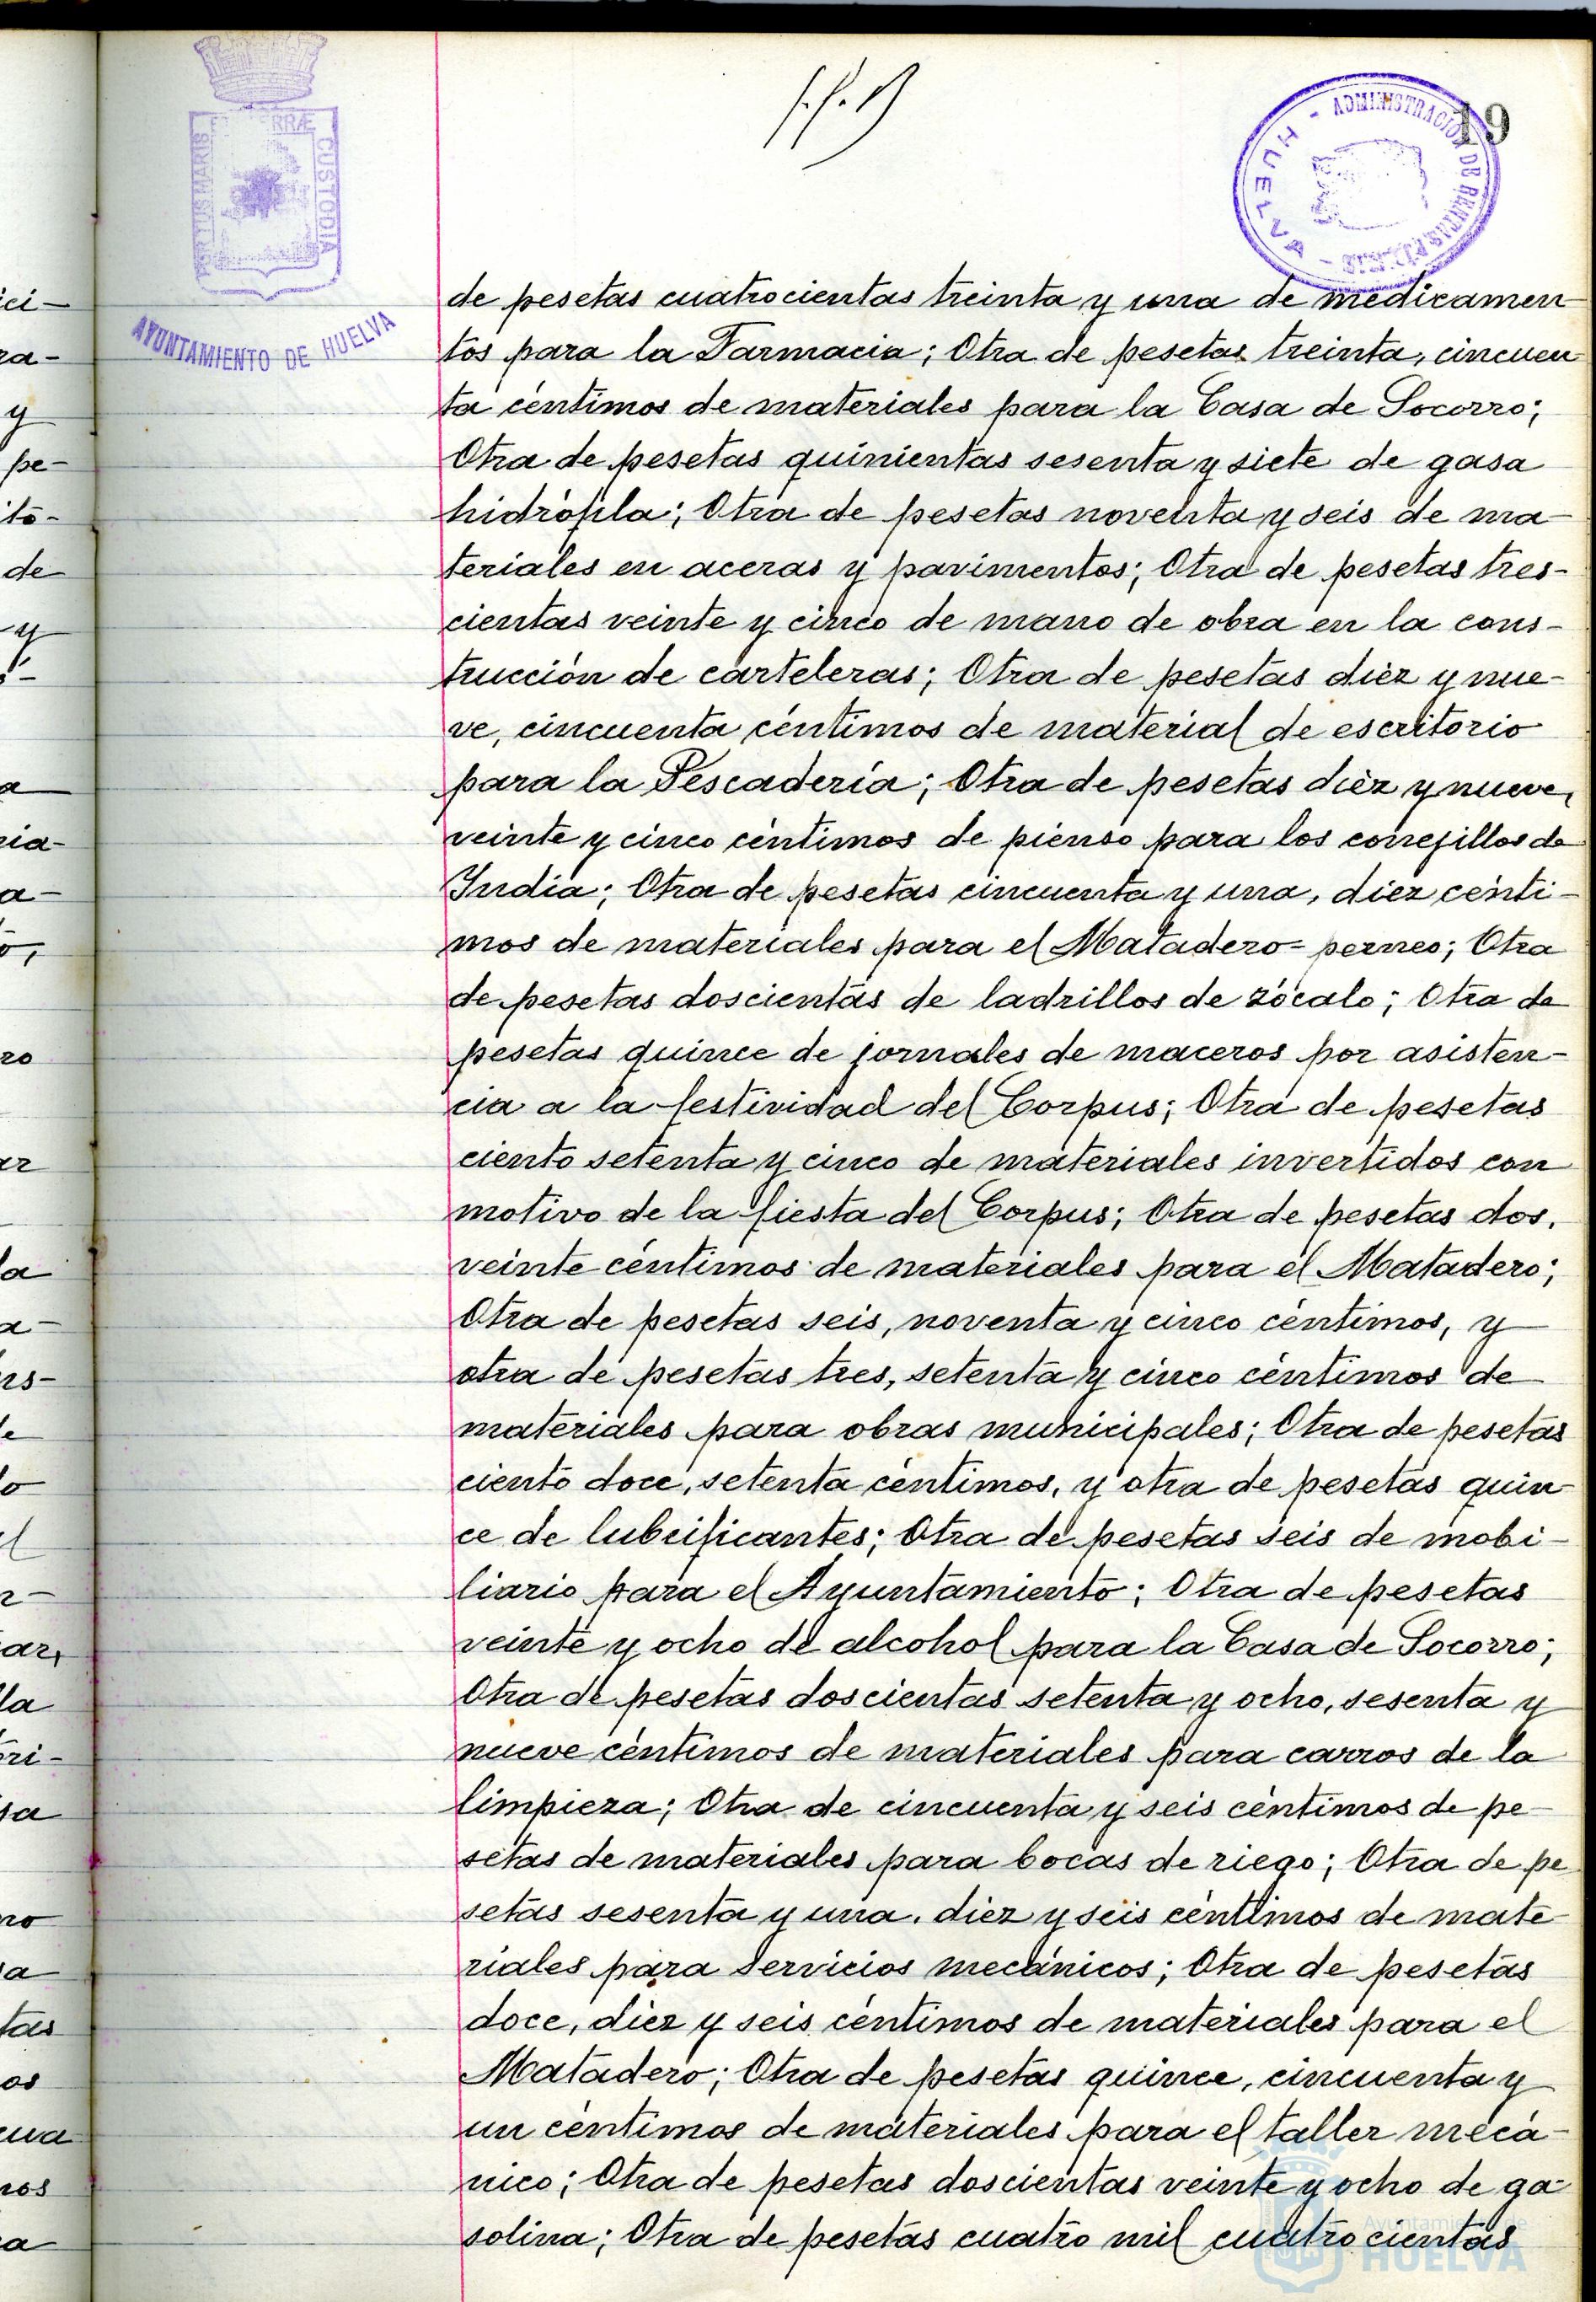 19
ADMINISTRACIÓN DE RENTAS
HUELVA
PORTUS MARIS
CUSTODIA
AYUNTAMIENTO DE HUELVA
de pesetas cuatrocientas treinta y una de medicamen
tos para la Farmacia; Otra de pesetas treinta, cincuen
ta céntimos de materiales para la Casa de Socorro;
Otra de pesetas quinientas sesenta y siete de gasa
hidrófila; Otra de pesetas noventa y seis de ma-
teriales en aceras y pavimentos; Otra de pesetas tres-
cientas veinte y cinco de mano de obra en la cons-
trucción de carteleras; Otra de pesetas diez y nue-
ve, cincuenta céntimos de material de escritorio
para la Pescadería; Otra de pesetas diez y nueve,
veinte y cinco céntimos de pienso para los conejillos de
India; Otra de pesetas cincuenta y una, diez cénti-
mos de materiales para el Matadero= perneo; Otra
de pesetas doscientas de ladrillos de zócalo; Otra de
pesetas quince de jornales de maceros por asisten-
cia a la festividad del Corpus; Otra de pesetas
ciento setenta y cinco de materiales invertidos con
motivo de la fiesta del Corpus; Otra de pesetas dos,
veinte céntimos de materiales para el Matadero;
Otra de pesetas seis, noventa y cinco céntimos, y
otra de pesetas tres, setenta y cinco céntimos de
materiales para obras municipales; Otra de pesetas
ciento doce, setenta céntimos, y otra de pesetas quin-
ce de lubrificantes; Otra de pesetas seis de mobi-
liario para el Ayuntamiento; Otra de pesetas
veinte y ocho de alcohol para la Casa de Socorro;
Otra de pesetas doscientas setenta y ocho, sesenta y
nueve céntimos de materiales para carros de la
limpieza; Otra de cincuenta y seis céntimos de pe-
setas de materiales para bocas de riego; Otra de pe
setas sesenta y una, diez y seis céntimos de mate
riales para servicios mecánicos; Otra de pesetas
doce, diez y seis céntimos de materiales para el
Matadero; Otra de pesetas quince, cincuenta y
un céntimos de materiales para el taller mecá-
nico; Otra de pesetas doscientas veinte y ocho de ga-
solina; Otra de pesetas cuatro mil cuatrocientas
Ayuntamiento de
HUELVA